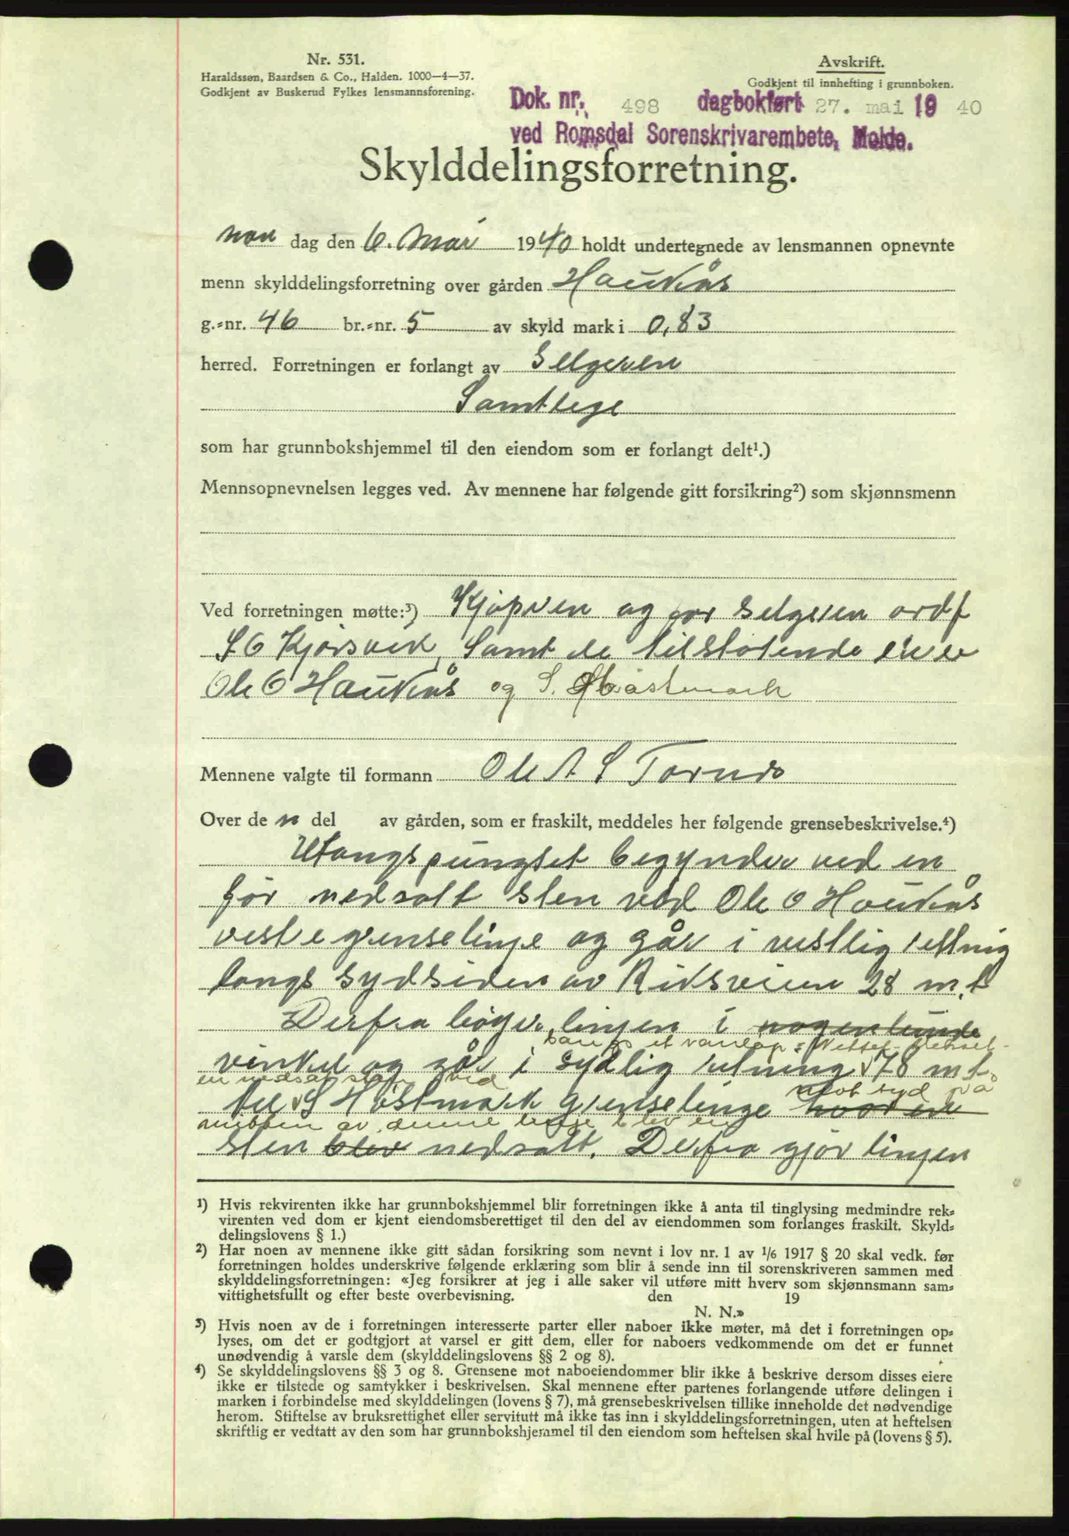 Nr. 531.
Haraldssøn, Baardsen & Co., Halden. 1000—4—37.
Godkjent av Buskerud Fylkes lensmannsforening.
Avskrift.
Godkjent til innhefting i grunnboken.
Dok. nr. 498 dagbokført 27. mai 19 40
ved Romsdal Sorenskrivarembete, Molde.
Skylddelingsforretning.
man dag den 6. Mai 1940 holdt undertegnede av lensmannen opnevnte
menn skylddelingsforretning over gården Haukås
g.-nr. 46 br.-nr. 5 av skyld mark i 0,83
herred. Forretningen er forlangt av Selgeren
Samtlege
som har grunnbokshjemmel til den eiendom som er forlangt delt¹.)
Mennsopnevnelsen legges ved. Av mennene har følgende gitt forsikring²) som skjønnsmenn
Ved forretningen møtte:³) Kjøperen og for Selgeren ordf
S O Kjørsvik, Samt de tilstøtende eiere
Ole O Haukås og S. Høstmark
Mennene valgte til formann Ole A S Tornes
Over de n del av gården, som er fraskilt, meddeles her følgende grensebeskrivelse.⁴)
Utangspungtet begynder ved en
før nedsatt sten ved Ole O Haukås
veste grenselinje og går i vestlig retning
langs sydsiden av Riksveien 28 m.t
Derfra bøyer linjen i nogenlunde
vinkel og går i sydlig retning 78 m.t.
til S Høstmark grenselinge hvor en
sten blev nedsatt. Derfra gjør linjen
¹) Hvis rekvirenten ikke har grunnbokshjemmel blir forretningen ikke å anta til tinglysing medmindre rek-
virenten ved dom er kjent eiendomsberettiget til den del av eiendommen som forlanges fraskilt. Skyld-
delingslovens § 1.)
²) Har noen av mennene ikke gitt sådan forsikring som nevnt i lov nr. 1 av ¹/₆ 1917 § 20 skal vedk. før
forretningen holdes underskrive følgende erklæring som blir å sende inn til sorenskriveren sammen med
skylddelingsforretningen: «Jeg forsikrer at jeg i alle saker vil utføre mitt hverv som skjønnsmann sam-
vittighetsfullt og efter beste overbevisning. den 19
N. N.»
³) Hvis noen av de i forretningen interesserte parter eller naboer ikke møter, må det i forretningen op-
lyses, om det er godtgjort at varsel er gitt dem, eller for naboers vedkommende om det er funnet
unødvendig å varsle dem (skylddelingslovens §§ 2 og 8).
⁴) Se skylddelingslovens §§ 3 og 8. Grensene mot naboeiendommer blir ikke å beskrive dersom disses eiere
ikke er tilstede og samtykker i beskrivelsen. Skal mennene efter partenes forlangende utføre delingen i
marken i forbindelse med skylddelingen (lovens § 7), må grensebeskrivelsen tillike inneholde det nødvendige
herom. Stiftelse av bruksrettighet eller servitutt må ikke tas inn i skylddelingsforretningen, uten at heftelsen
skriftlig er vedtatt av den som har grunnbokshjemmel til den eiendom som heftelsen skal hvile på (lovens § 5).